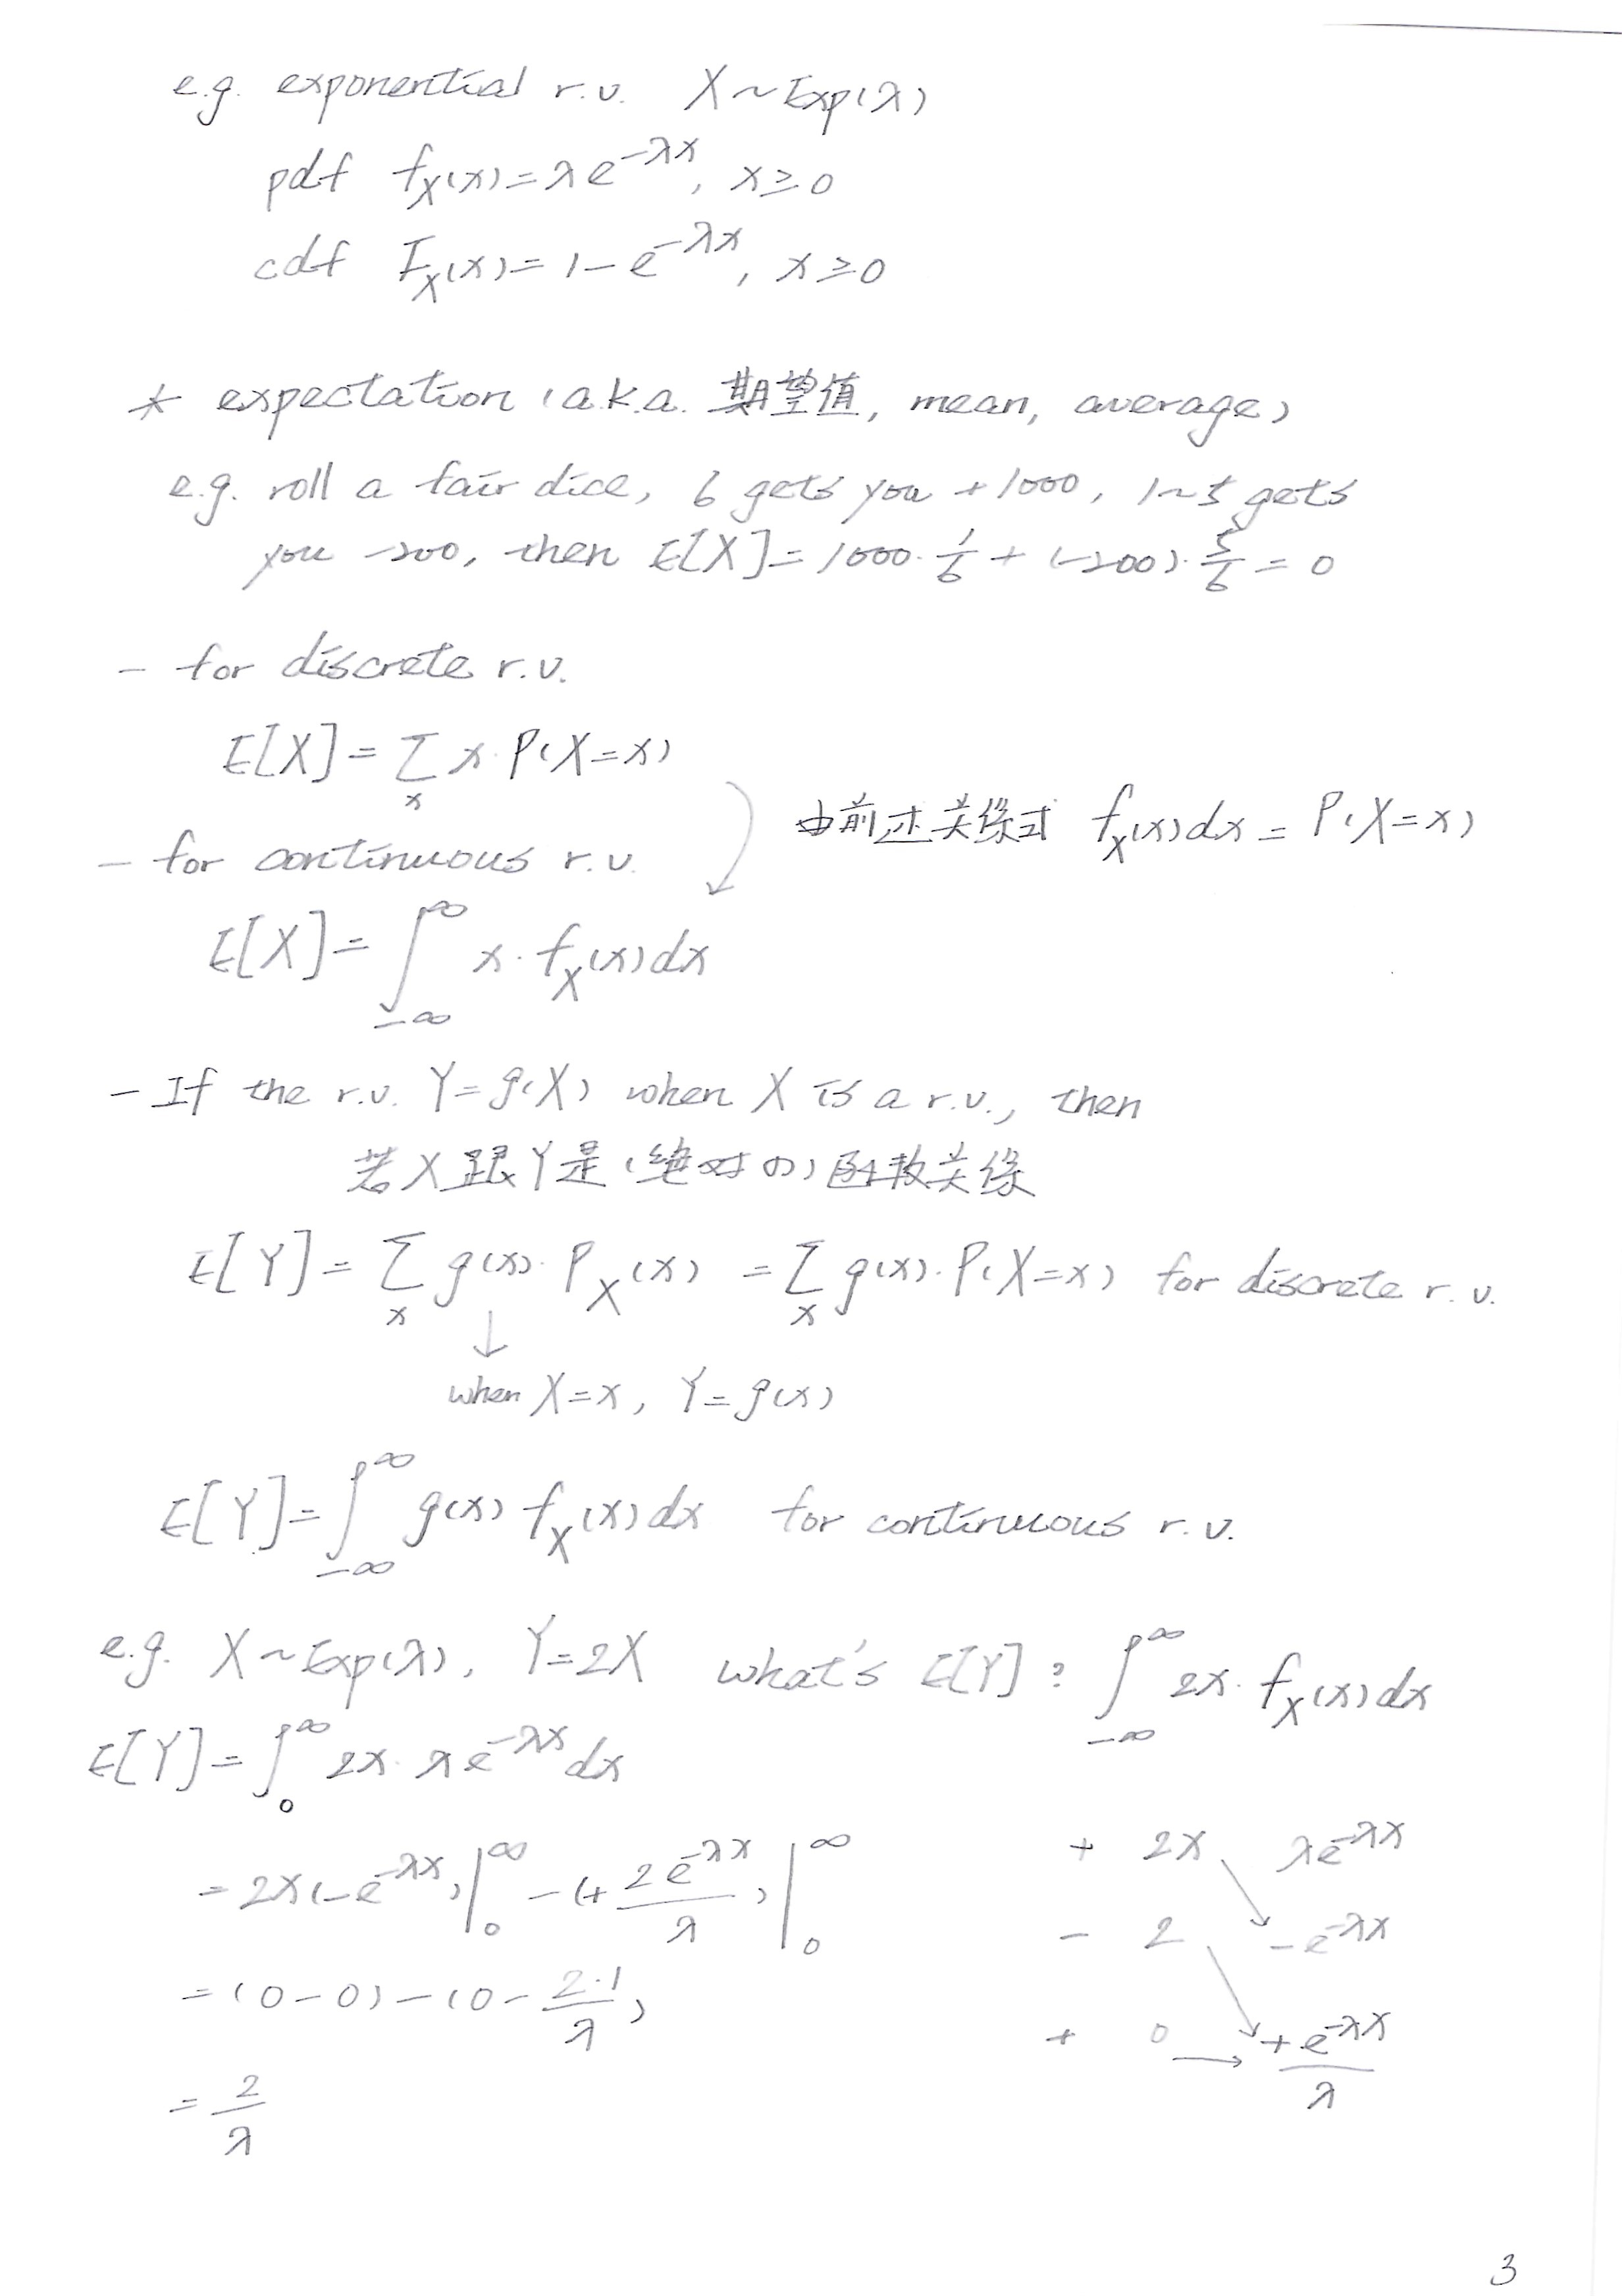 e.g. exponential r.v. X~Exp(λ)
pdf f_X(x)=λe^{-λx}, x≥0
cdf F_X(x)=1-e^{-λx}, x≥0
* expectation (a.k.a. 期望值, mean, average)
e.g. roll a fair dice, 6 gets you +1000, 1~5 gets
you -200, then E[X]=1000·1/6+(-200)·5/6=0
- for discrete r.v.
E[X]=∑_x x·P(X=x)
由前述关係式 f_X(x)dx=P(X=x)
- for continuous r.v.
E[X]=∫_{-∞}^{∞} x·f_X(x)dx
- If the r.v. Y=g(X) when X is a r.v., then
若X跟Y是(绝对の)函数关係
E[Y]=∑_x g(x)·P_X(x)=∑_x g(x)·P(X=x) for discrete r.v.
↓
when X=x, Y=g(x)
E[Y]=∫_{-∞}^{∞} g(x)f_X(x)dx for continuous r.v.
e.g. X~Exp(λ), Y=2X what's E[Y]? ∫_{-∞}^{∞} 2x·f_X(x)dx
E[Y]=∫_0^∞ 2x·λe^{-λx}dx
=2x(-e^{-λx})|_0^∞-(+2e^{-λx}/λ)|_0^∞
=(0-0)-(0-2·1/λ)
=2/λ
+ 2x λe^{-λx}
- 2 -e^{-λx}
+ 0 → +e^{-λx}/λ
3